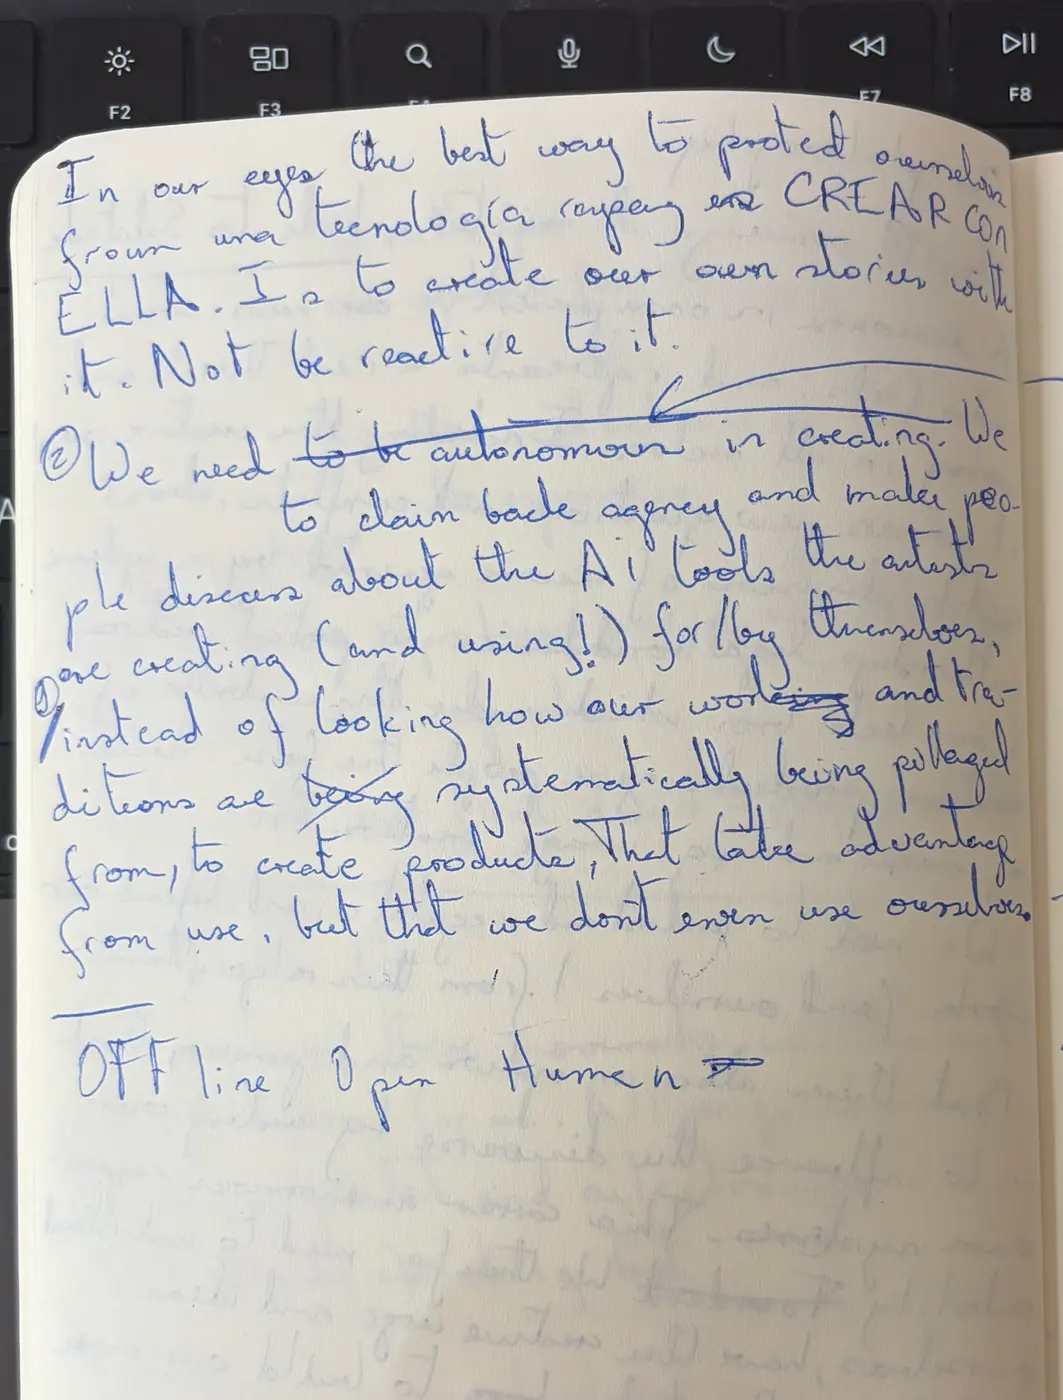 F2
F3
F7
F8
In our eyes the best way to protect ourselves
from una tecnología es CREAR CON
ELLA. Is to create our own stories with
it. Not be reactive to it.
② We need to be autonomous in creating. We
to claim back agency and make peo-
ple discuss about the Ai tools the artists
are creating (and using!) for/by themselves,
① instead of looking how our working and tra-
ditions are being systematically being pillaged
from, to create products, That take advantage
from use, but that we don't even use ourselves.
OFFline Open Human